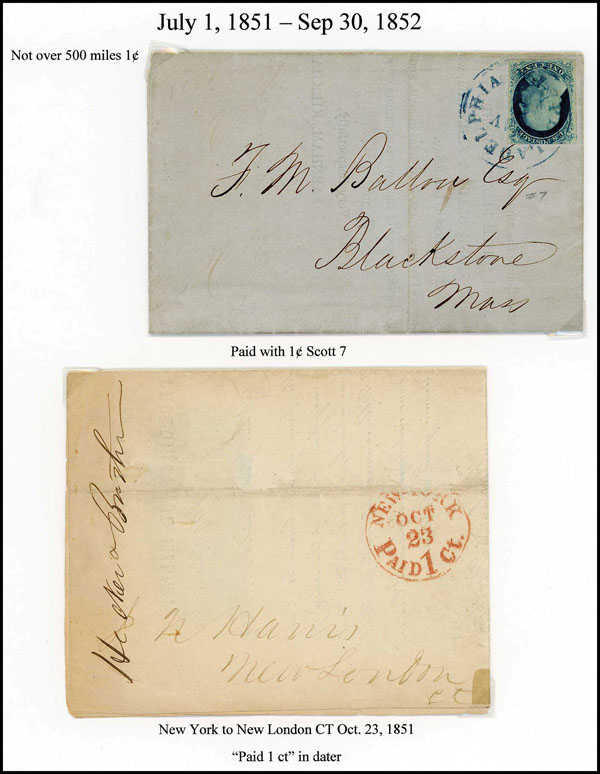 July 1, 1851 – Sep 30, 1852
Not over 500 miles 1¢
F. M. Ballou Esq
#7
Blackstone
Mass
Paid with 1¢ Scott 7
NEW-YORK
OCT
23
PAID 1 Ct.
N Harris
New London
CT
New York to New London CT Oct. 23, 1851
“Paid 1 ct” in dater